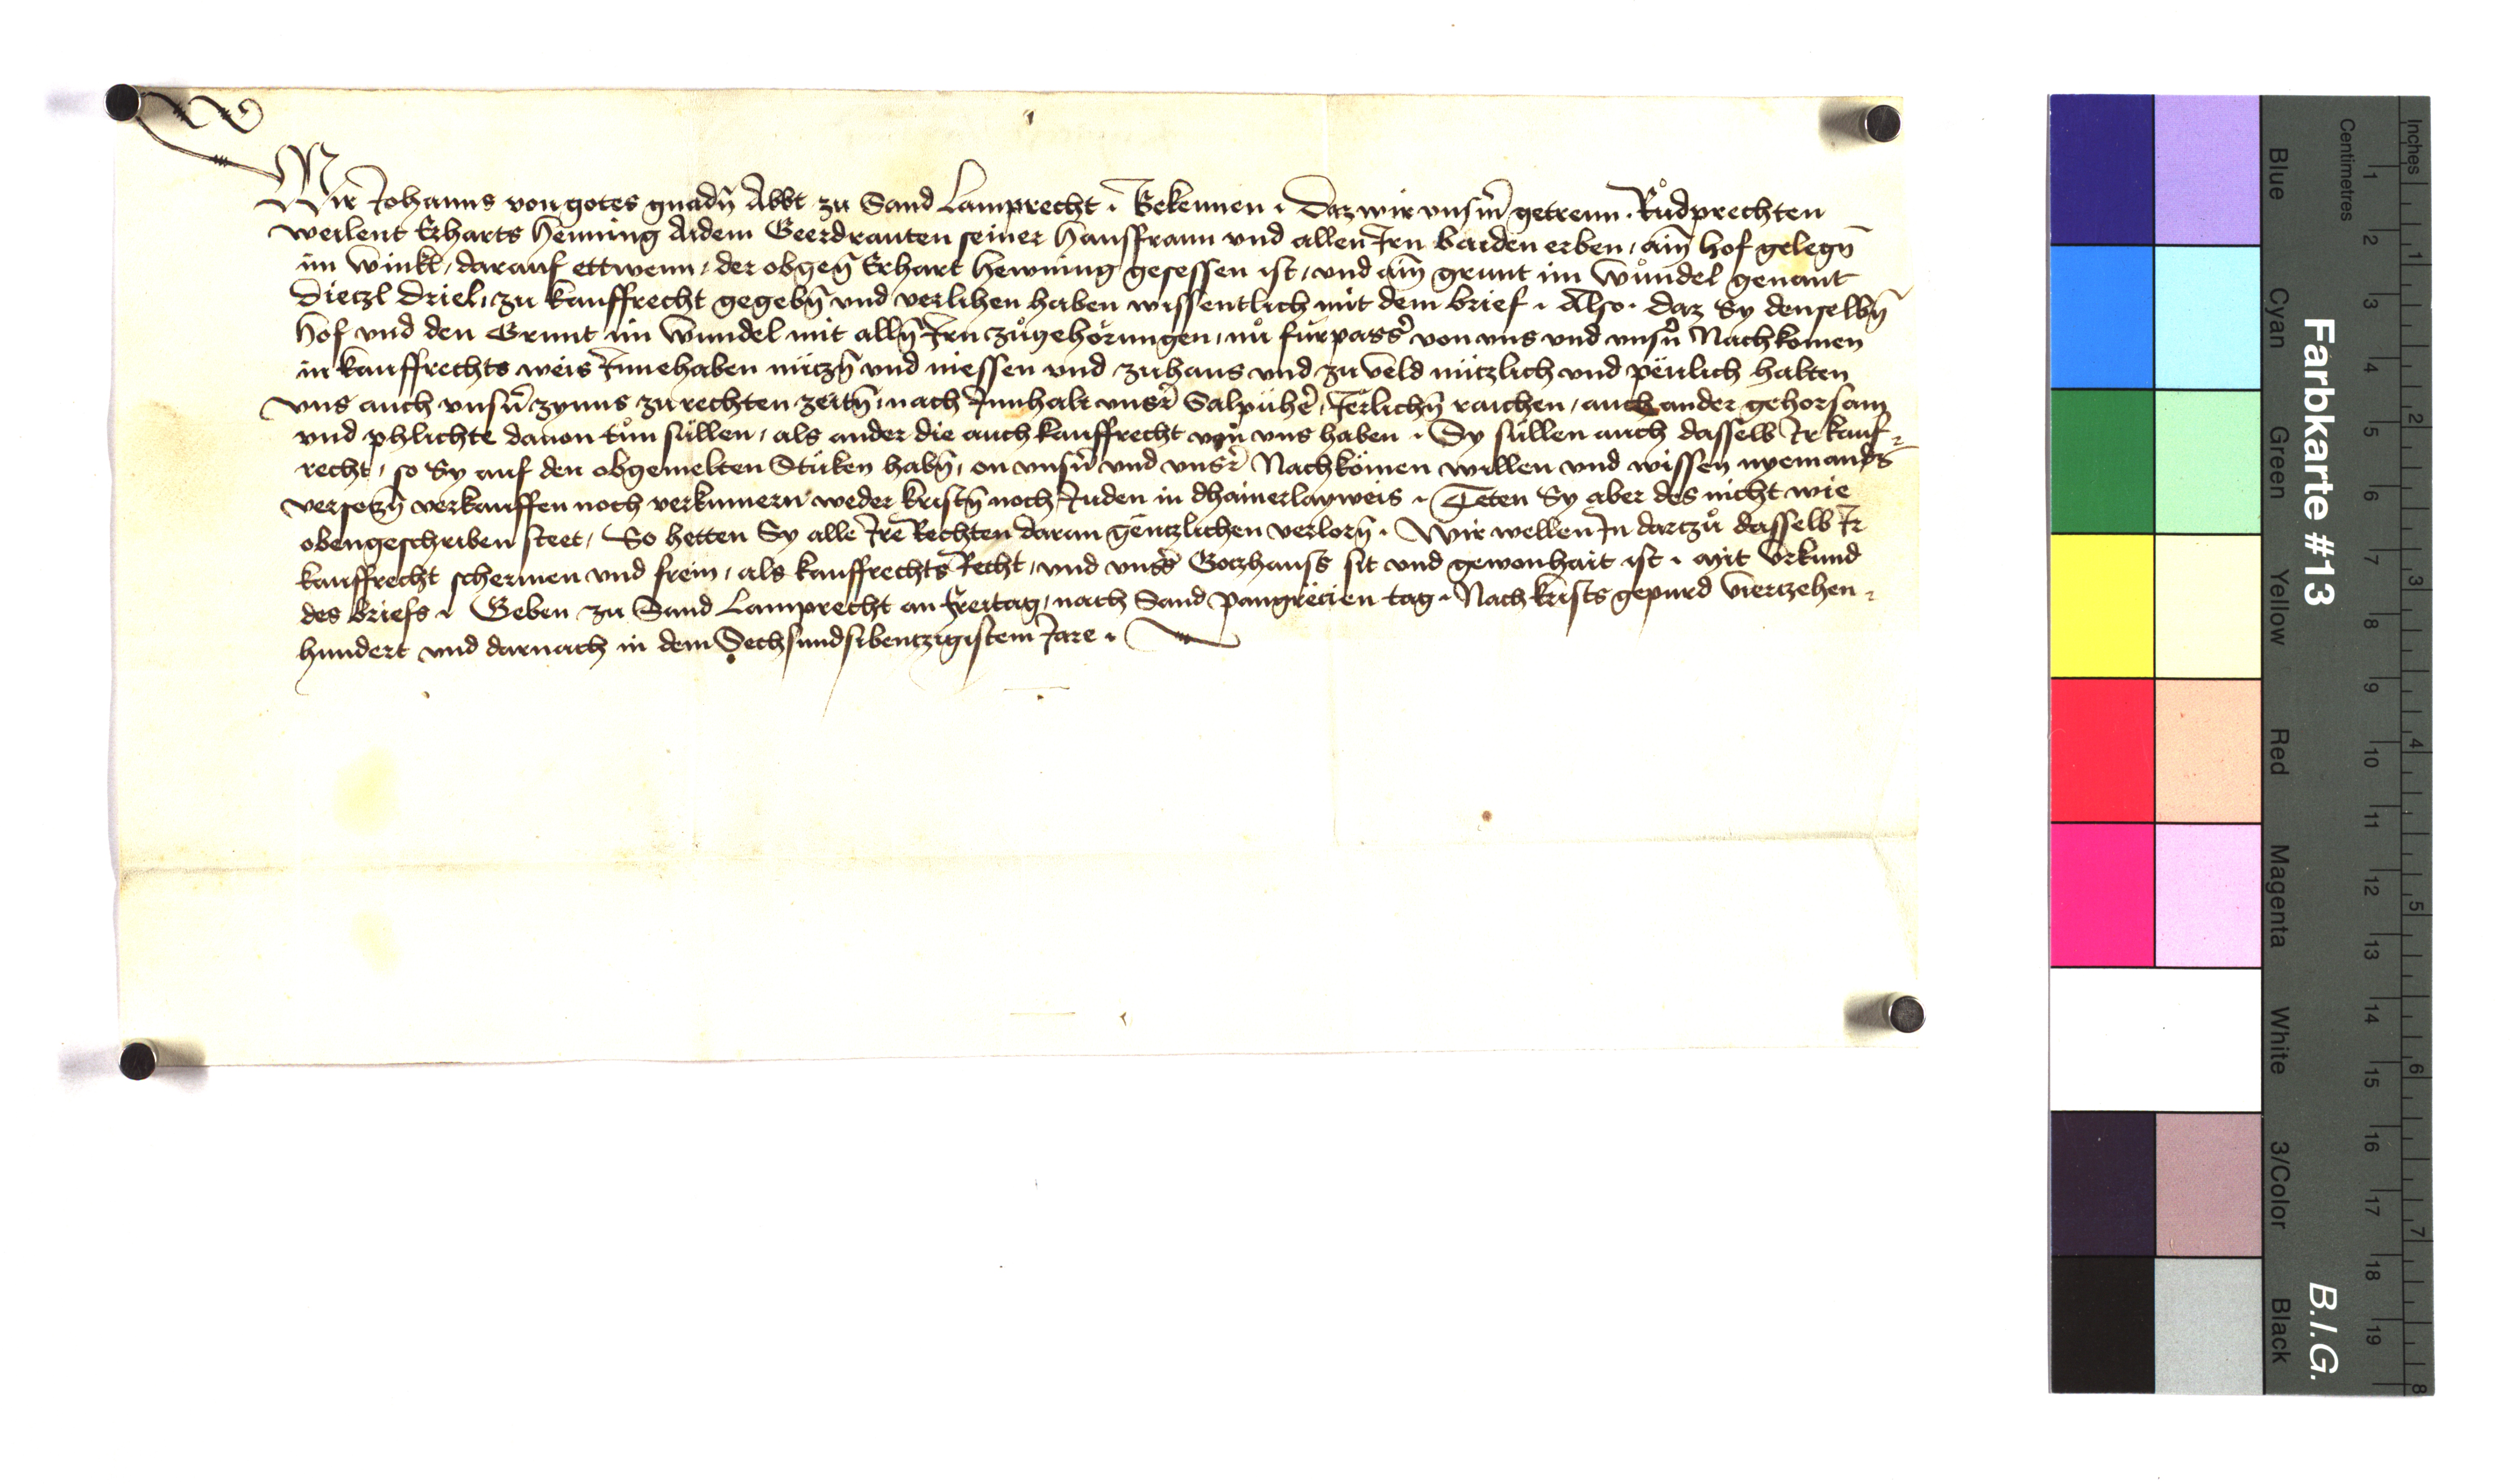 Wir Johanns von gotes gnadn̄ Abbt zu Sand Lamprecht · Bekennen · Daz wir vnsm̄ getrewn · Růdprechten
weilent Erharts Henning Aidem Geerdrauten seiner Hausfrawn vnd allen Irn baiden erben / aim̄ hof gelegn̄
im winkl / darauf ettwenn / der obgen̄ Erhart Hewning gesessen ist / vnd aim̄ grunt im wůndel genant
Dietzl Driel / zu kauffrecht gegebn̄ vnd verlihen haben wissentlich mit dem brief · Also · daz Sy denselbn̄
hof vnd den Grunt im wundel mit alln̄ Irn zůgehorungen / nu fůrpass̄ von vns vnd vnsn̄ Nachkomen
in kauffrechts weis Innehaben nützn̄ vnd niessen vnd zuhaus vnd zu veld nützlich vnd peulich halten
vns auch vnsn̄ zynns zu rechten zeitn̄ / nach Innhalt vnsr̄ Salpühe / Jerlichn̄ raichen / auch ander gehorsam
vnd phlichte dauon tůn süllen / als ander die auch kauffrecht von vns haben · Sy süllen auch dasselb Ir kauf-
recht / so Sy auf den obgemelten Stuken habn̄ / on vnsn̄ vnd vnsr̄ Nachkömen willen vnd wissen nyemands
versetzn̄ verkauffen noch verkumern weder kristn̄ noch Juden in dhainerlayweis · Teten Sy aber des nicht wie
obengeschriben steet / So hetten Sy alle Ire Rechten daran gentzlichen verlorn̄ · Wir wellen In dartzů dasselb Ir
kauffrecht schermen vnd frein / als kauffrechts Recht / vnd vnsr̄s Gotzhauss sit vnd gewonhait ist · mit vrkund
des briefs · Geben zu Sand Lamprecht an freitag / nach Sand pangrëcien tag · Nach krists gepurd viertzehen-
hundert vnd darnach in dem Sechsundsibentzigistem Jare ·
Farbkarte #13
B.I.G.
Inches
Centimetres
1 2 3 4 5 6 7 8 9 10 11 12 13 14 15 16 17 18 19
1 2 3 4 5 6 7 8
Blue
Cyan
Green
Yellow
Red
Magenta
White
3/Color
Black